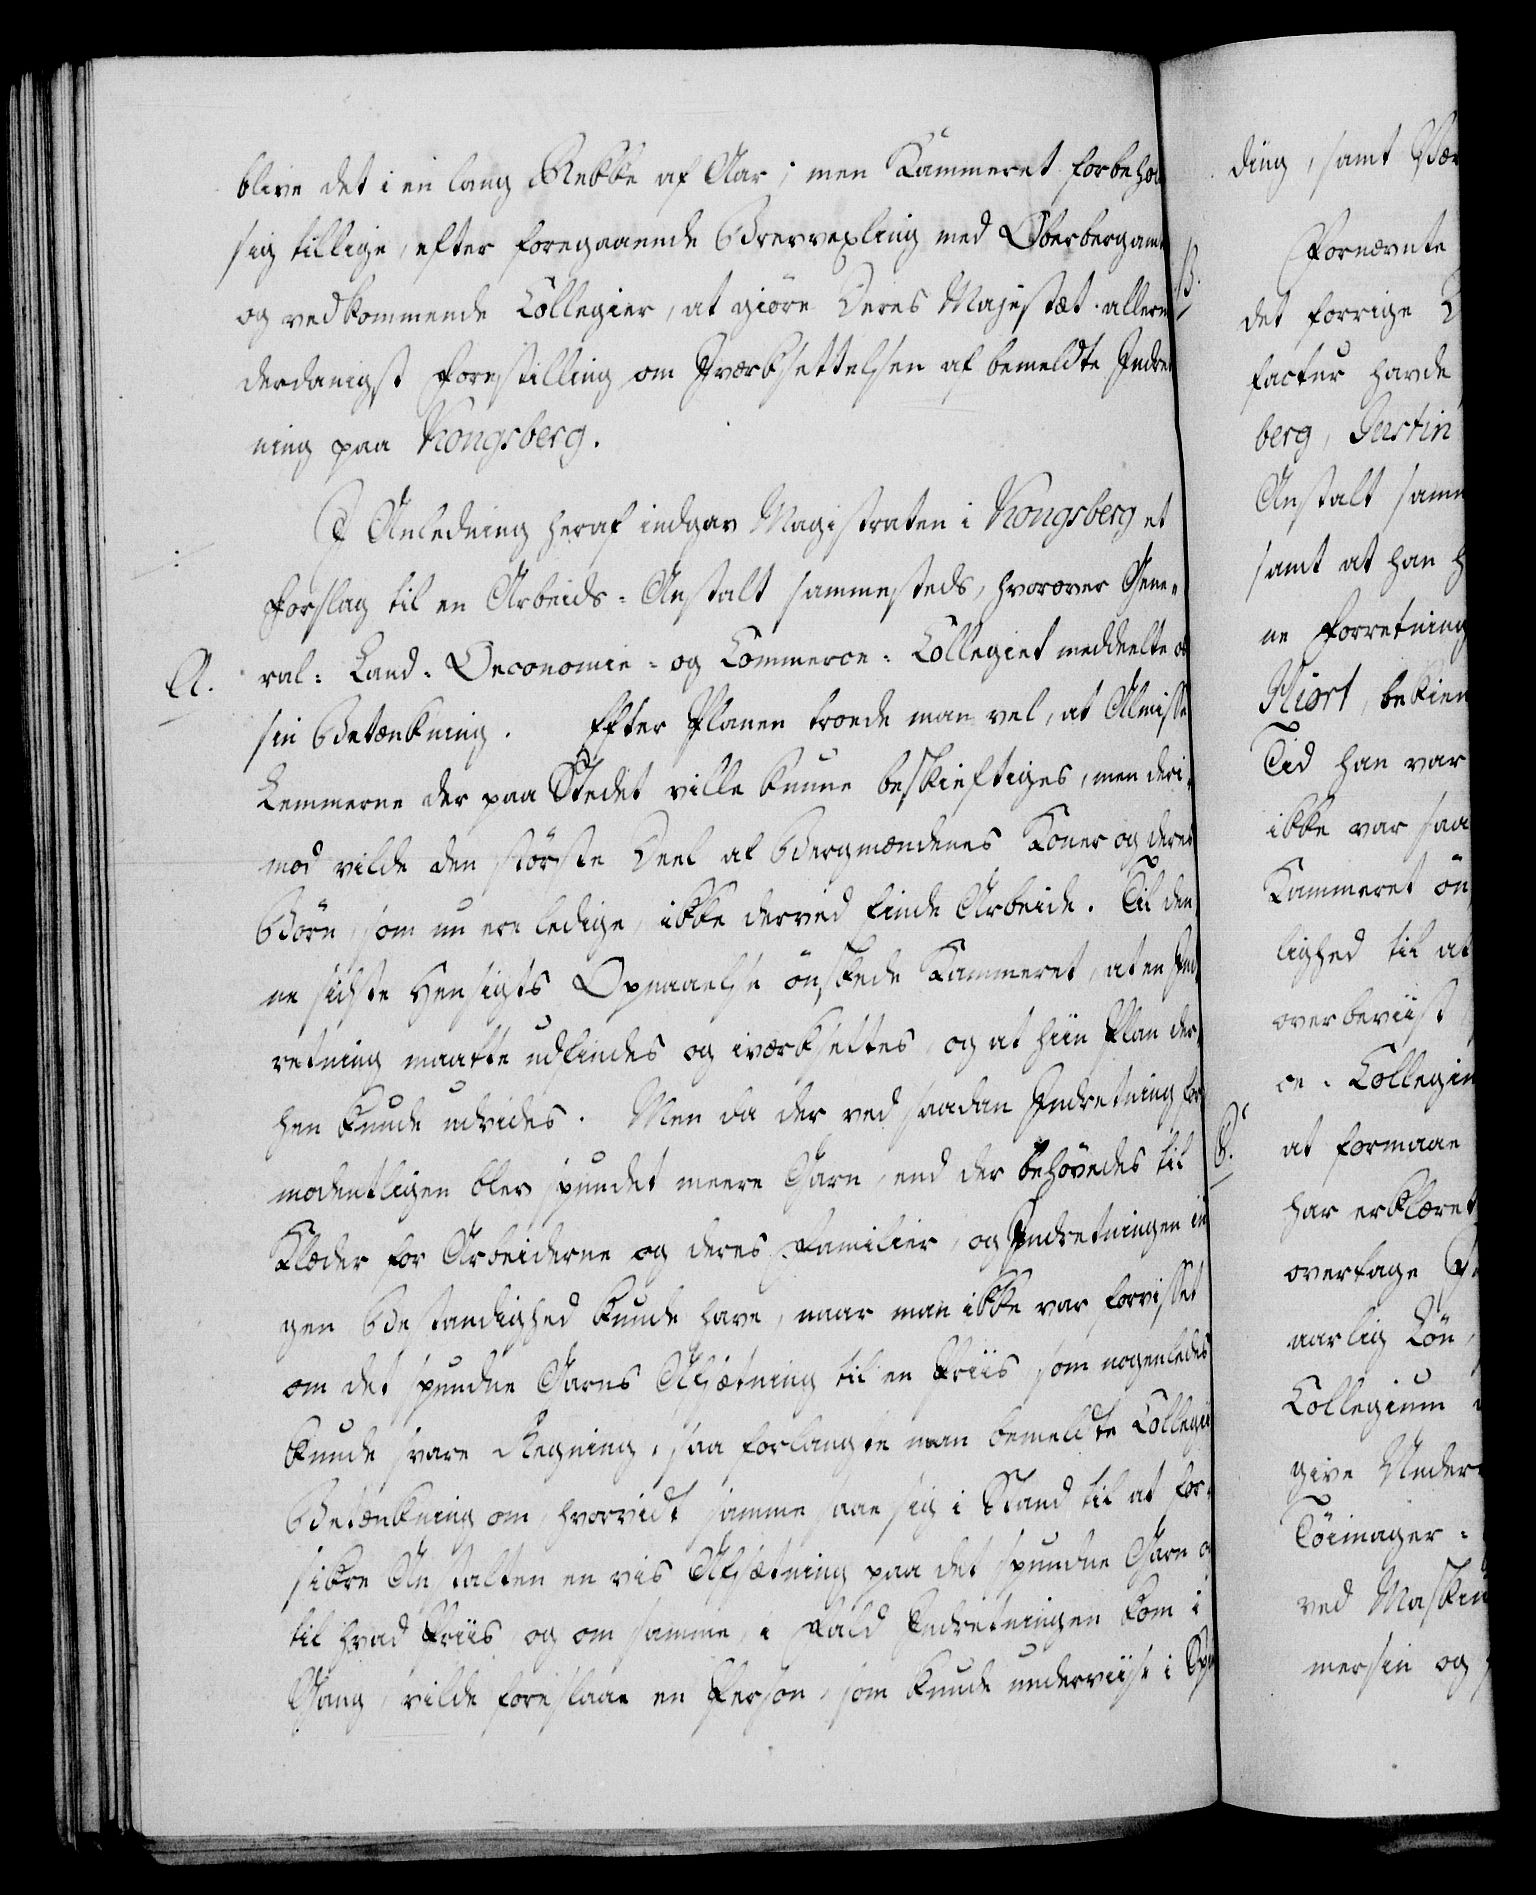 blive det i en lang Rekke af Aar; men Kammeret forbeholdt
sig tillige, efter foregaaende Brevvexling med Oberbergamt
og vedkommende Collegier, at giöre Deres Majestæt allerun
derdanigst Forestilling om Iværksettelsen af bemeldte Indret
ning paa Kongsberg.
I Anledning heraf indgav Magistraten i Kongsberg et
Forslag til en Arbeids-Anstalt sammesteds, hvorover Gene-
A. ral-Land-Oeconomie- og Commerce-Collegiet meddeelte os
sin Betænkning. Efter Planen troede man vel, at Almisse
Lemmerne der paa Stedet ville kunne beskieftiges, men deri-
mod vilde den störste Deel af Bergmændenes Koner og deres
Börn, som nu ere ledige, ikke derved finde Arbeide. Til den-
ne sidste Hensigts Opnaaelse önskede Kammeret, at en Ind-
retning maatte udfindes og iværksettes, og at hiin Plan der-
hen kunde udvides. Men da der ved saadan Indretning for-
modentligen blev spundet meere Garn, end der behövedes til
Klæder for Arbeiderne og deres Familier, og Indretningen in-
gen Bestandighed kunde have, naar man ikke var forvisset
om det spundne Garns Afsætning til en Priis som nogenledes
kunde svare Regning, saa forlangte man bemeldte Collegii
Betænkning om, hvorvidt samme saae sig i Stand til at for-
sikre Anstalten en vis Afsætning paa det spundne Garn og
til hvad Priis, og om samme, i Fald Indretningen kom i
Gang, vilde foreslaae en Person, som kunde underviise i Spin
ding, samt Væv
Fornævnte
B. det forrige
factur havde
berg, Justin
Anstalt samm
samt at han h
ne Forretning
Hiort, bekien
Tid han var
ikke var saa
Kammeret ön
lighed til at
overbeviist
ce-Collegiu
C. at formaae
har erklæret
overtage
aarlig Lön,
Collegium
give Under
Töimager-
ved Maskin
mersin og